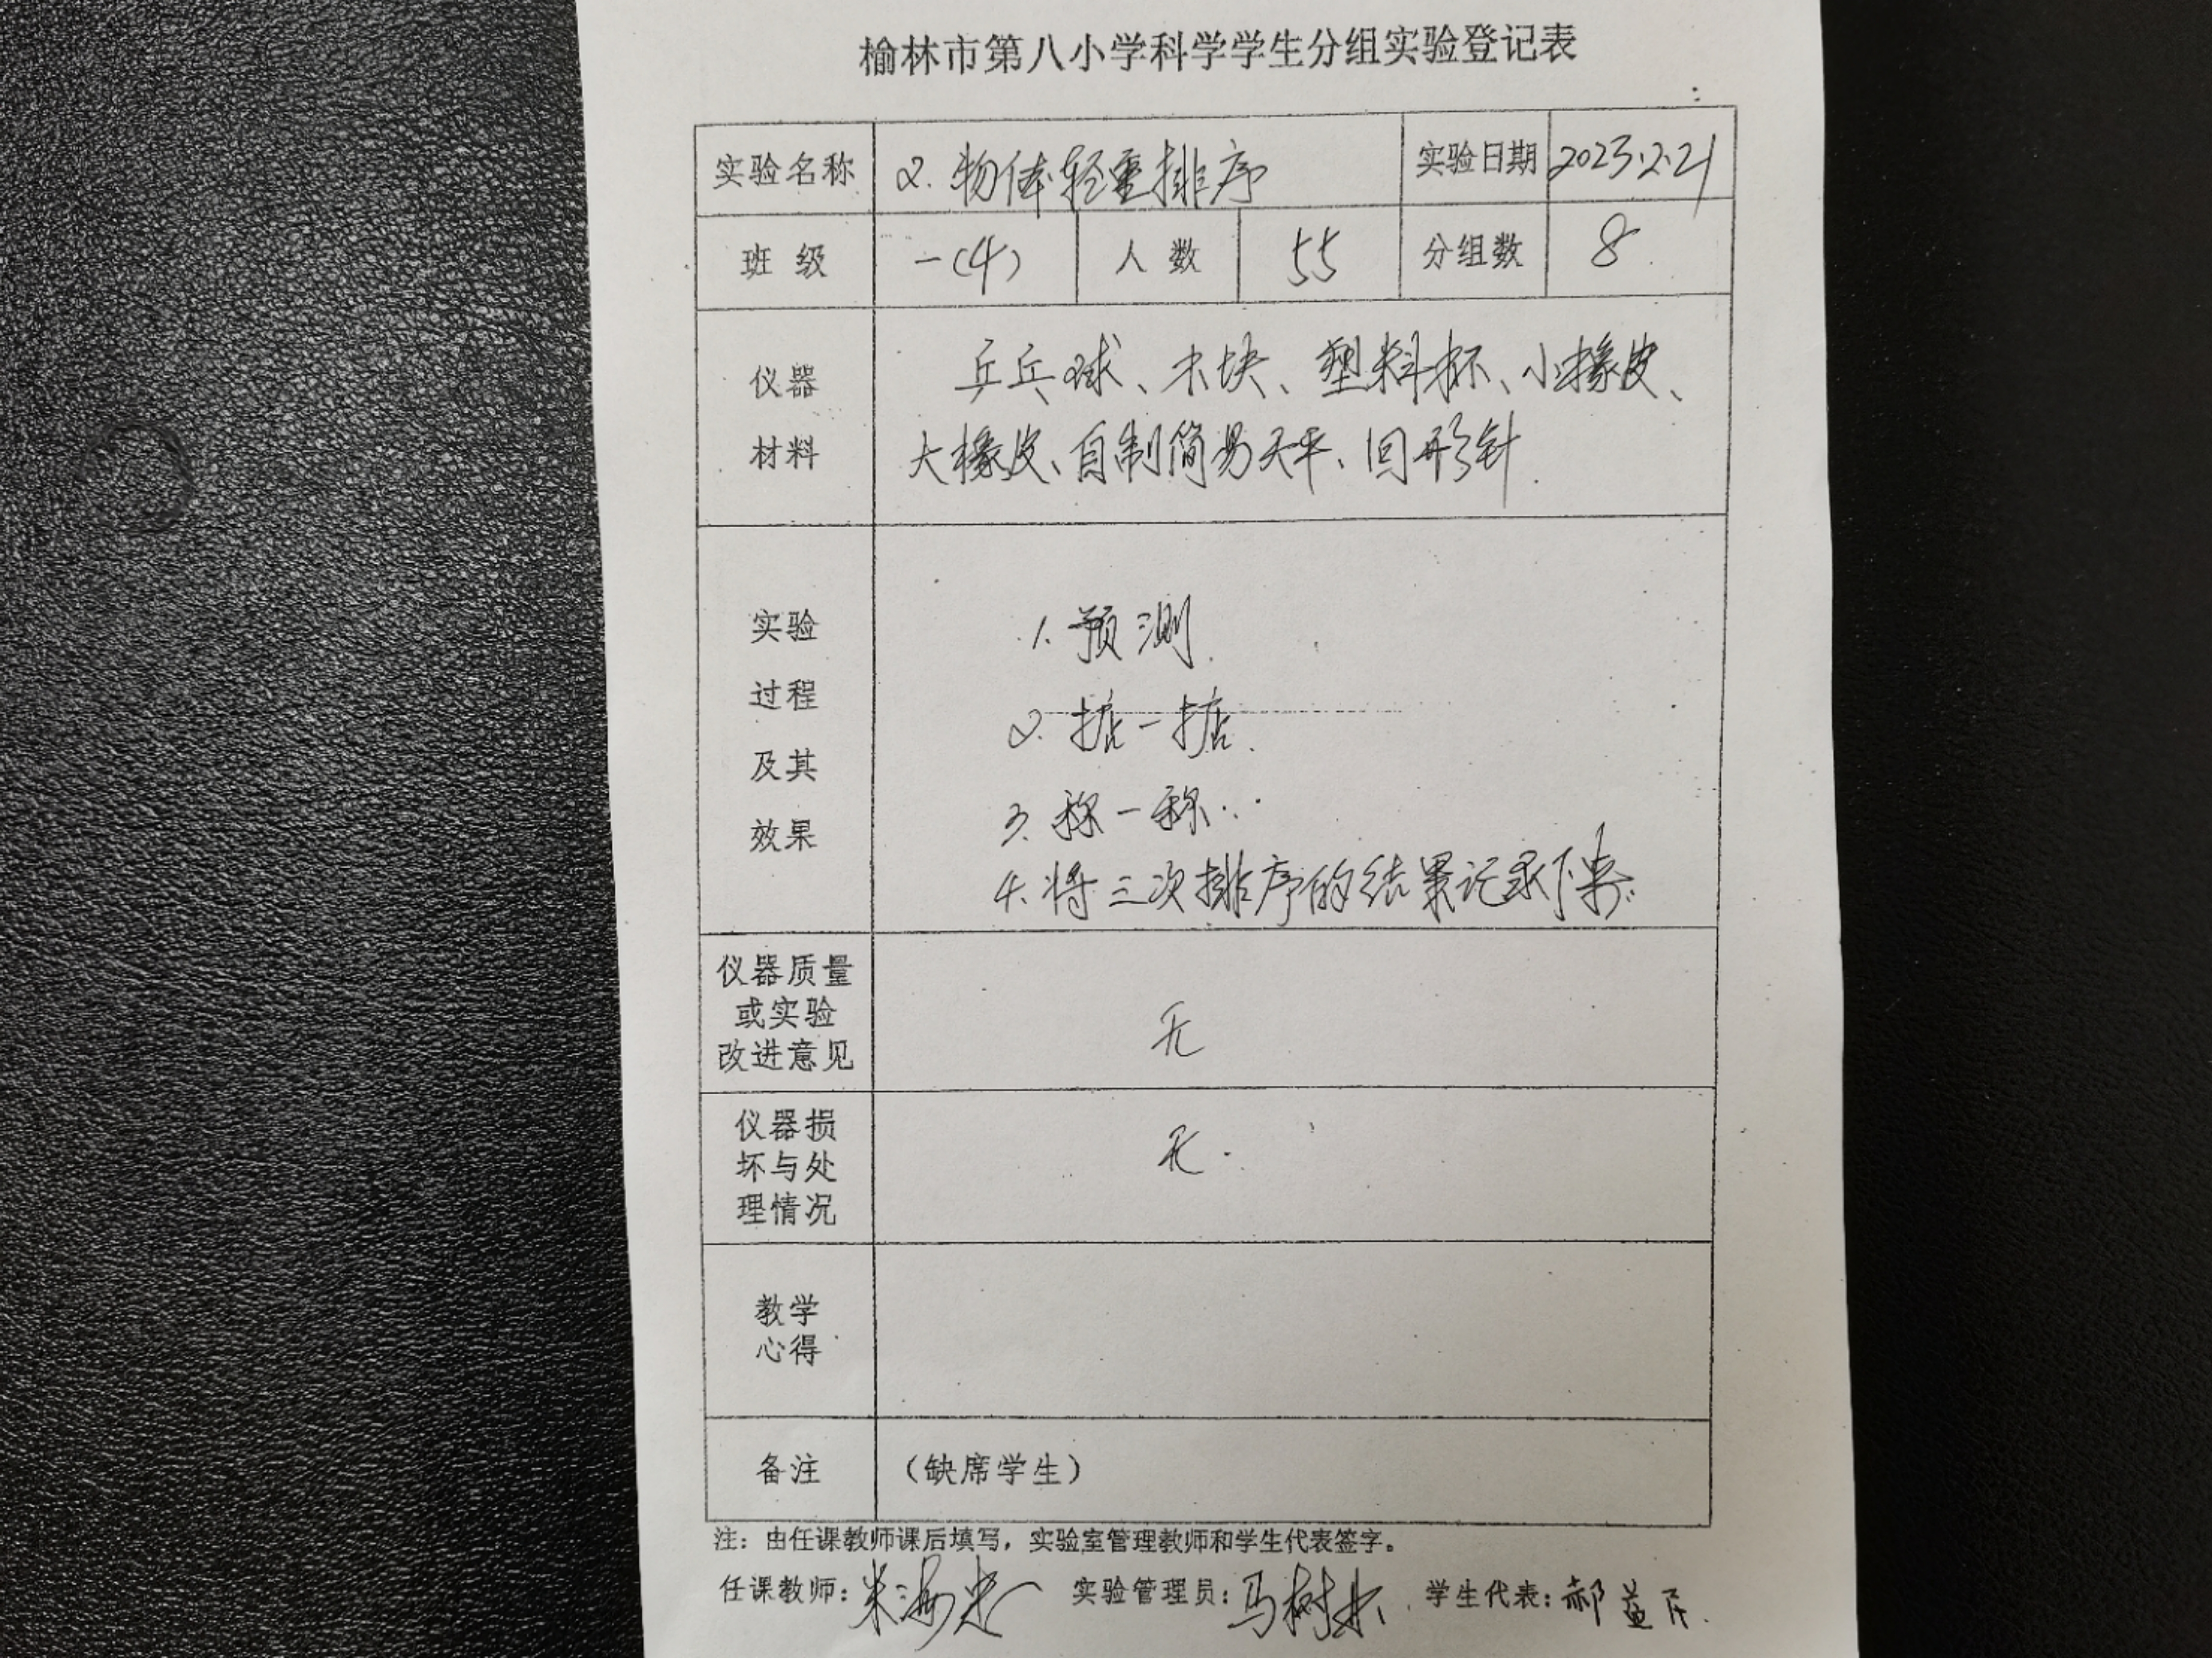 榆林市第八小学科学学生分组实验登记表
实验名称 2. 物体轻重排序 实验日期 2023.2.21
班 级 一(4) 人 数 55 分组数 8
仪器
材料
乒乓球、木块、塑料杯、小橡皮、
大橡皮、自制简易天平、回形针.
实验
过程
及其
效果
1. 预测.
2. 掂一掂.
3. 称一称.
4. 将三次排序的结果记录下来.
仪器质量
或实验
改进意见
无
仪器损
坏与处
理情况
无.
教学
心得
备注 (缺席学生)
注：由任课教师课后填写，实验室管理教师和学生代表签字。
任课教师: 实验管理员: 马树林 学生代表: 郝益